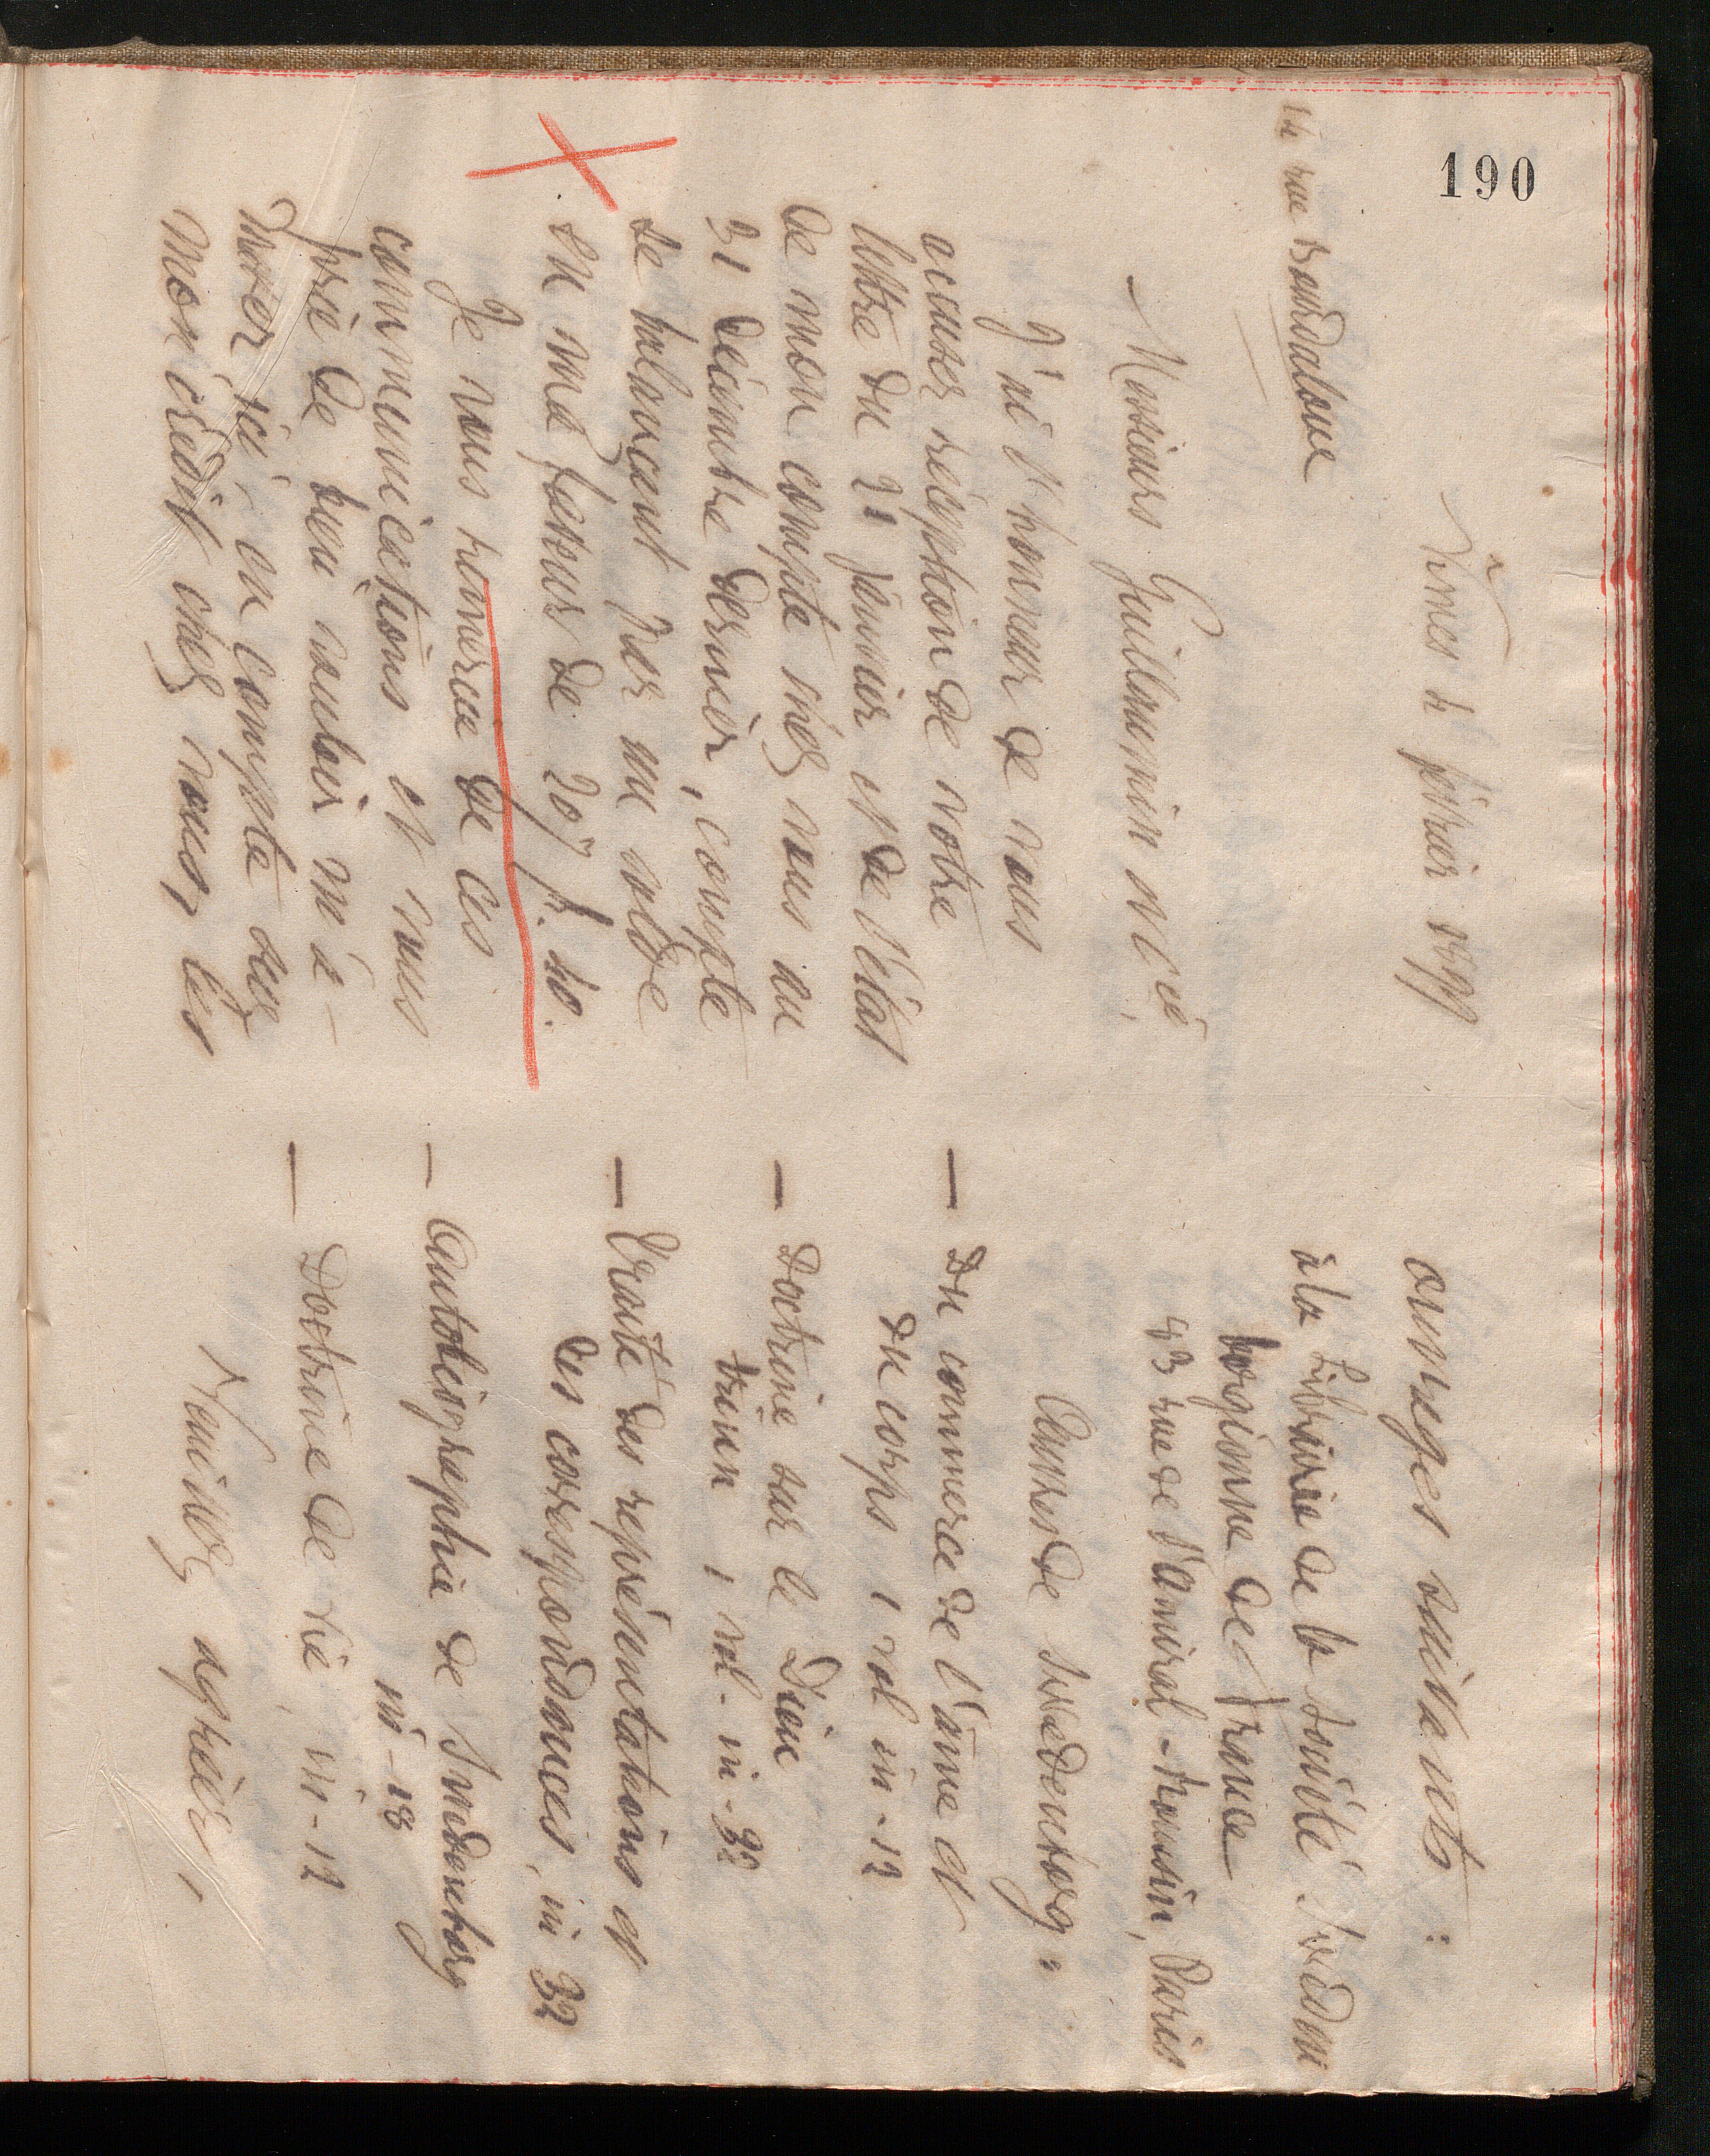 190
Nîmes 2 février 1899
12 rue Bourdaloue
Messieurs Guillaumin et Cie,
J'ai l'honneur de vous
accuser réception de votre
lettre du 21 janvier et de l'état
de mon compte chez vous au
31 décembre dernier, compte
se balançant par un solde
en ma faveur de 207 f. 40.
Je vous remercie de ces
communications et vous
prie de bien vouloir m'a-
cheter ici, en compte sur
mon crédit chez vous, les
ouvrages suivants :
à la Librairie de la Société Swéden
borgienne de France
93 rue de l'Amiral-Mouchez, Paris
Œuvres de Swedenborg :
— Du commerce de l'âme et
du corps 1 vol in-12
— Doctrine sur le Dieu
triun 1 vol. in-32
— Traité des représentations et
des correspondances, in 32
— Autobiographie de Swedenborg
in-18
— Doctrine de vie, in-12
Veuillez agréer,